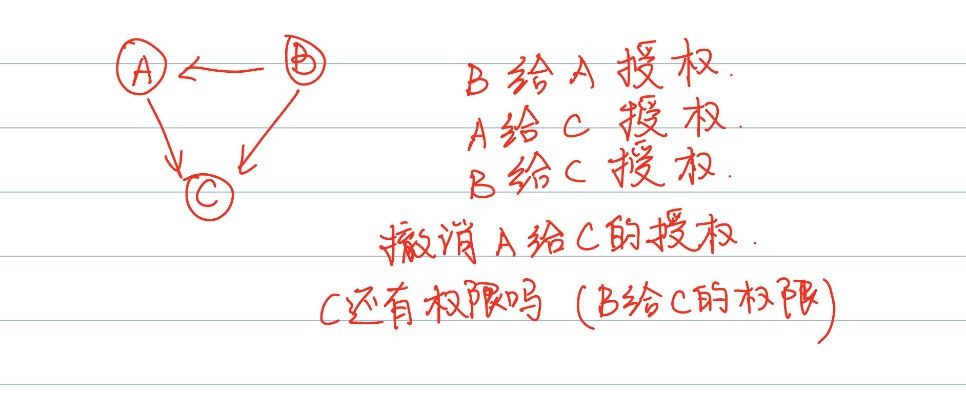 A
B
C
B给A授权.
A给C授权.
B给C授权.
撤消A给C的授权.
C还有权限吗（B给C的权限）